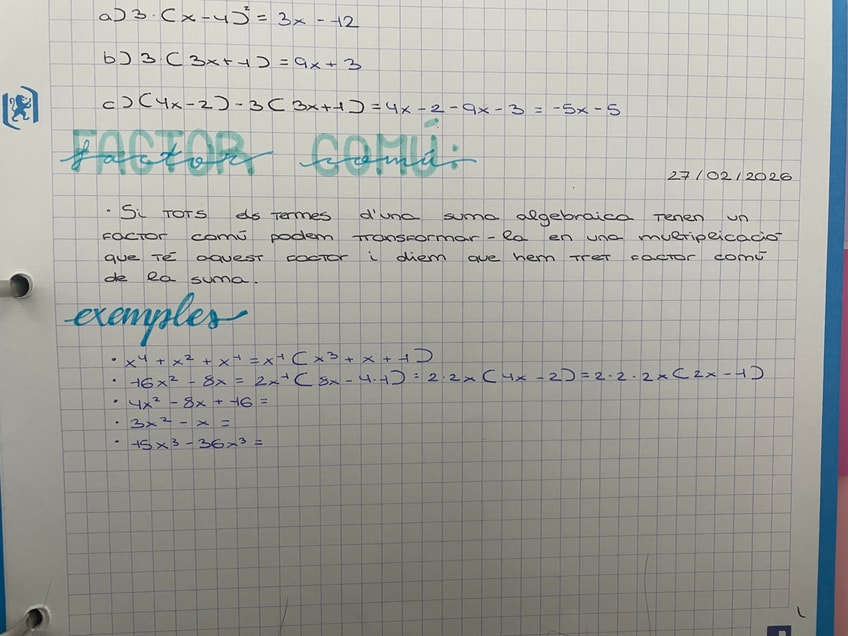 a) 3·(x-4)² = 3x - 12
b) 3(3x+1) = 9x + 3
c) (4x-2)-3(3x+1) = 4x-2-9x-3 = -5x-5
FACTOR COMÚ:
factor comú:
27/02/2026
· Si TOTS els termes d'una suma algebraica tenen un
factor comú podem transformar-la en una multiplicació
que té aquest factor i diem que hem tret factor comú
de la suma.
exemples
· x⁴ + x² + x¹ = x¹(x³ + x + 1)
· 16x² - 8x = 2x¹(8x - 4·1) = 2·2x(4x - 2) = 2·2·2x(2x - 1)
· 4x² - 8x + 16 =
· 3x² - x =
· 15x³ - 36x³ =